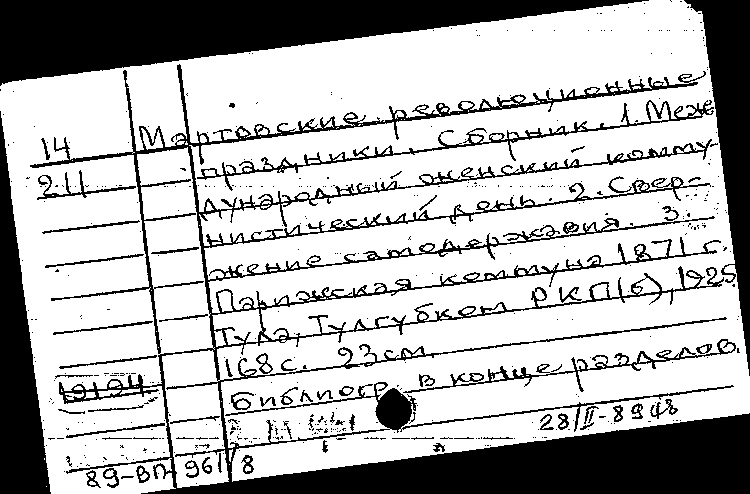 14 Мартовские революционные
211 праздники. Сборник. 1. Меж
дународный женский комму-
нистический день. 2. Сверс-
жение самодержавия. 3.
Парижская коммуна 1871 г.
Тула, Тулгубком РКП(б), 1925
168 с. 23 см.
19194
Библиогр. в конце разделов.
28/II-8948
89-ВП 961/8